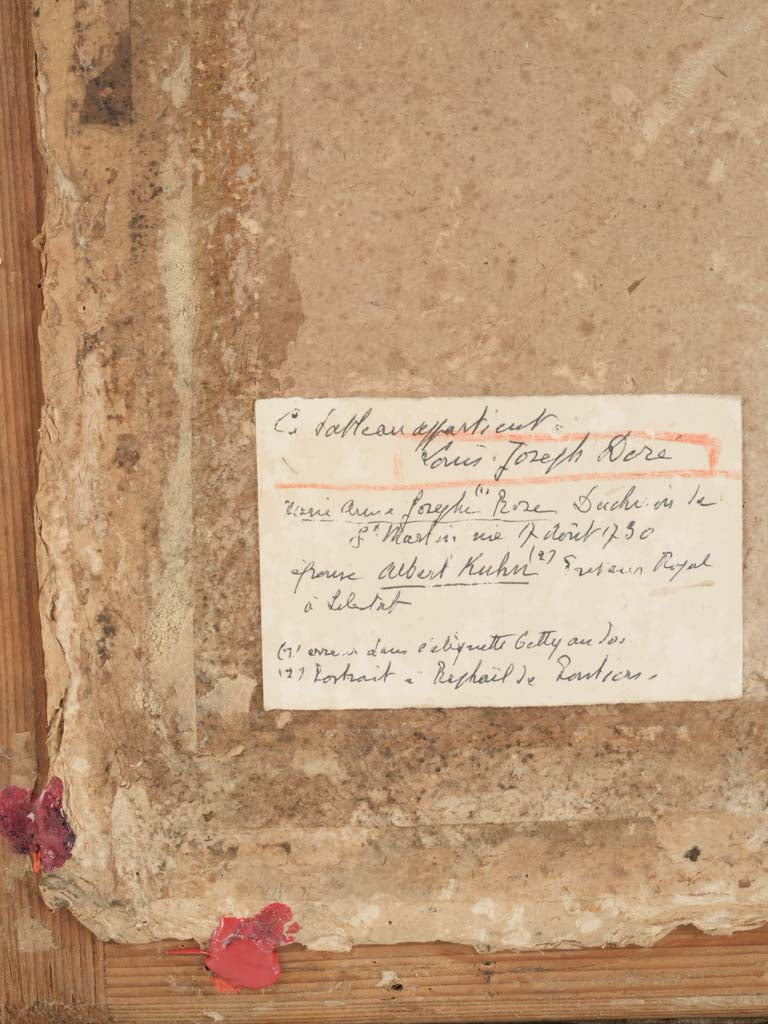 Ce tableau appartient :
Louis. Joseph Doré
Marie Anne Josephe (1) Rose Duch de
St Martin née 17 Août 1730
épouse Albert Kuhn (2) Royal
à
(1) erreur dans l'étiquette Getty au dos
(2) Portrait à Raphaël de